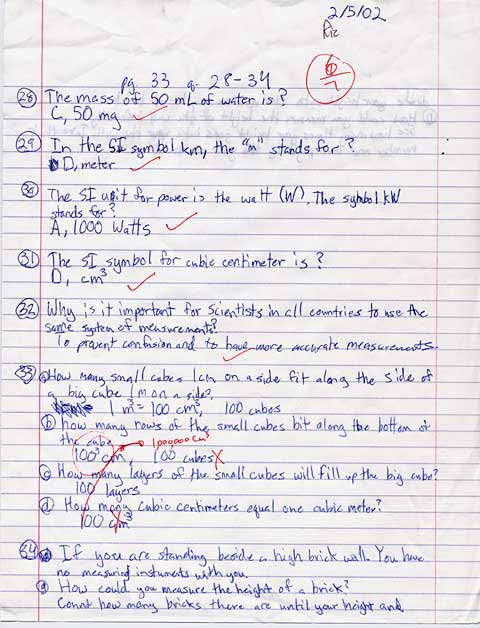 2/5/02
6/7
pg. 33 q. 28-34
28 The mass of 50 mL of water is?
C, 50 mg
29 In the SI symbol km, the "m" stands for?
D, meter
30 The SI unit for power is the watt (W). The symbol kW
stands for?
A, 1000 Watts
31 The SI symbol for cubic centimeter is?
D, cm³
32 Why is it important for scientists in all countries to use the
same system of measurements?
To prevent confusion and to have more accurate measurements.
33 a How many small cubes 1cm on a side fit along the side of
a big cube 1m on a side?
1 m³ = 100 cm³, 100 cubes
b how many rows of the small cubes bit along the bottom of
the cube 1,000,000 cm³
100³ cm, 100 cubes X
c How many layers of the small cubes will fill up the big cube?
100 layers
d How many cubic centimeters equal one cubic meter?
100 cm³
34 If you are standing beside a high brick wall. You have
no measuring instuments with you.
a How could you measure the height of a brick?
Count how many bricks there are until your height and